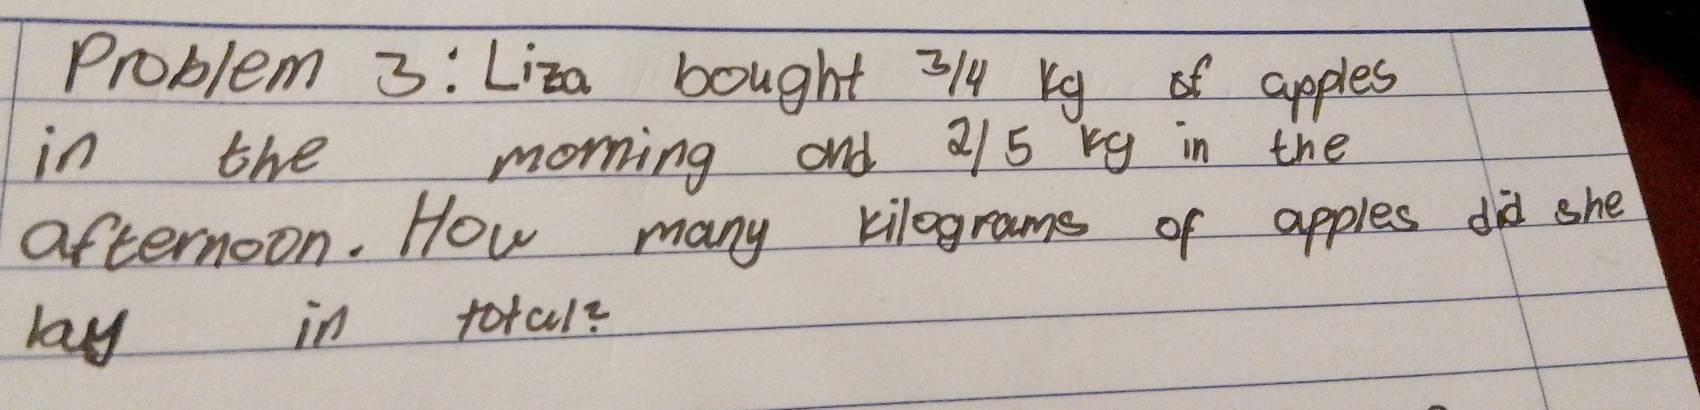 Problem 3: Liza bought 3/4 kg of apples
in the morning and 2/5 kg in the
afternoon. How many kilograms of apples did she
buy in total?